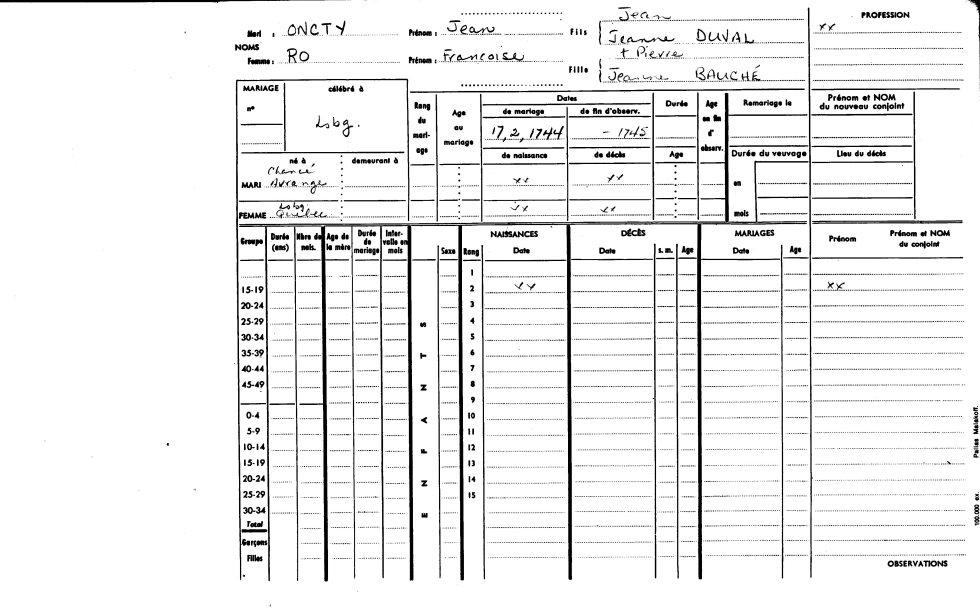 Jean
PROFESSION
Mari : ONCTY Prénom : Jean Fils Jeanne DUVAL xx
NOMS
Femme : RO Prénom : Francoise Fille + Pierre
Jeanne BAUCHÉ
MARIAGE célébré à
n° Lsbg.
Rang du mariage
Age au mariage
Dates
de mariage de fin d'observ.
17,2,1744 - 1745
de naissance de décès
Durée
Age
Age en fin d'observ.
Remariage le
Prénom et NOM du nouveau conjoint
Durée du veuvage
Lieu du décès
en
mois
né à demeurant à
Chancé
MARI Avrange xx xx
Lsbg
FEMME Québec xx xx
Groupe Durée (ans) Nbre de nais. Age de la mère Durée de mariage Inter-valle en mois
ENFANTS
Sexe Rang
NAISSANCES
Date
DÉCÈS
Date s. m. Age
MARIAGES
Date Age
Prénom Prénom et NOM du conjoint
1
15-19 2 xx xx
20-24 3
25-29 4
30-34 5
35-39 6
40-44 7
45-49 8
9
0-4 10
5-9 11
10-14 12
15-19 13
20-24 14
25-29 15
30-34
Total
Garçons
Filles
OBSERVATIONS
100.000 ex. Pallas Malakoff.